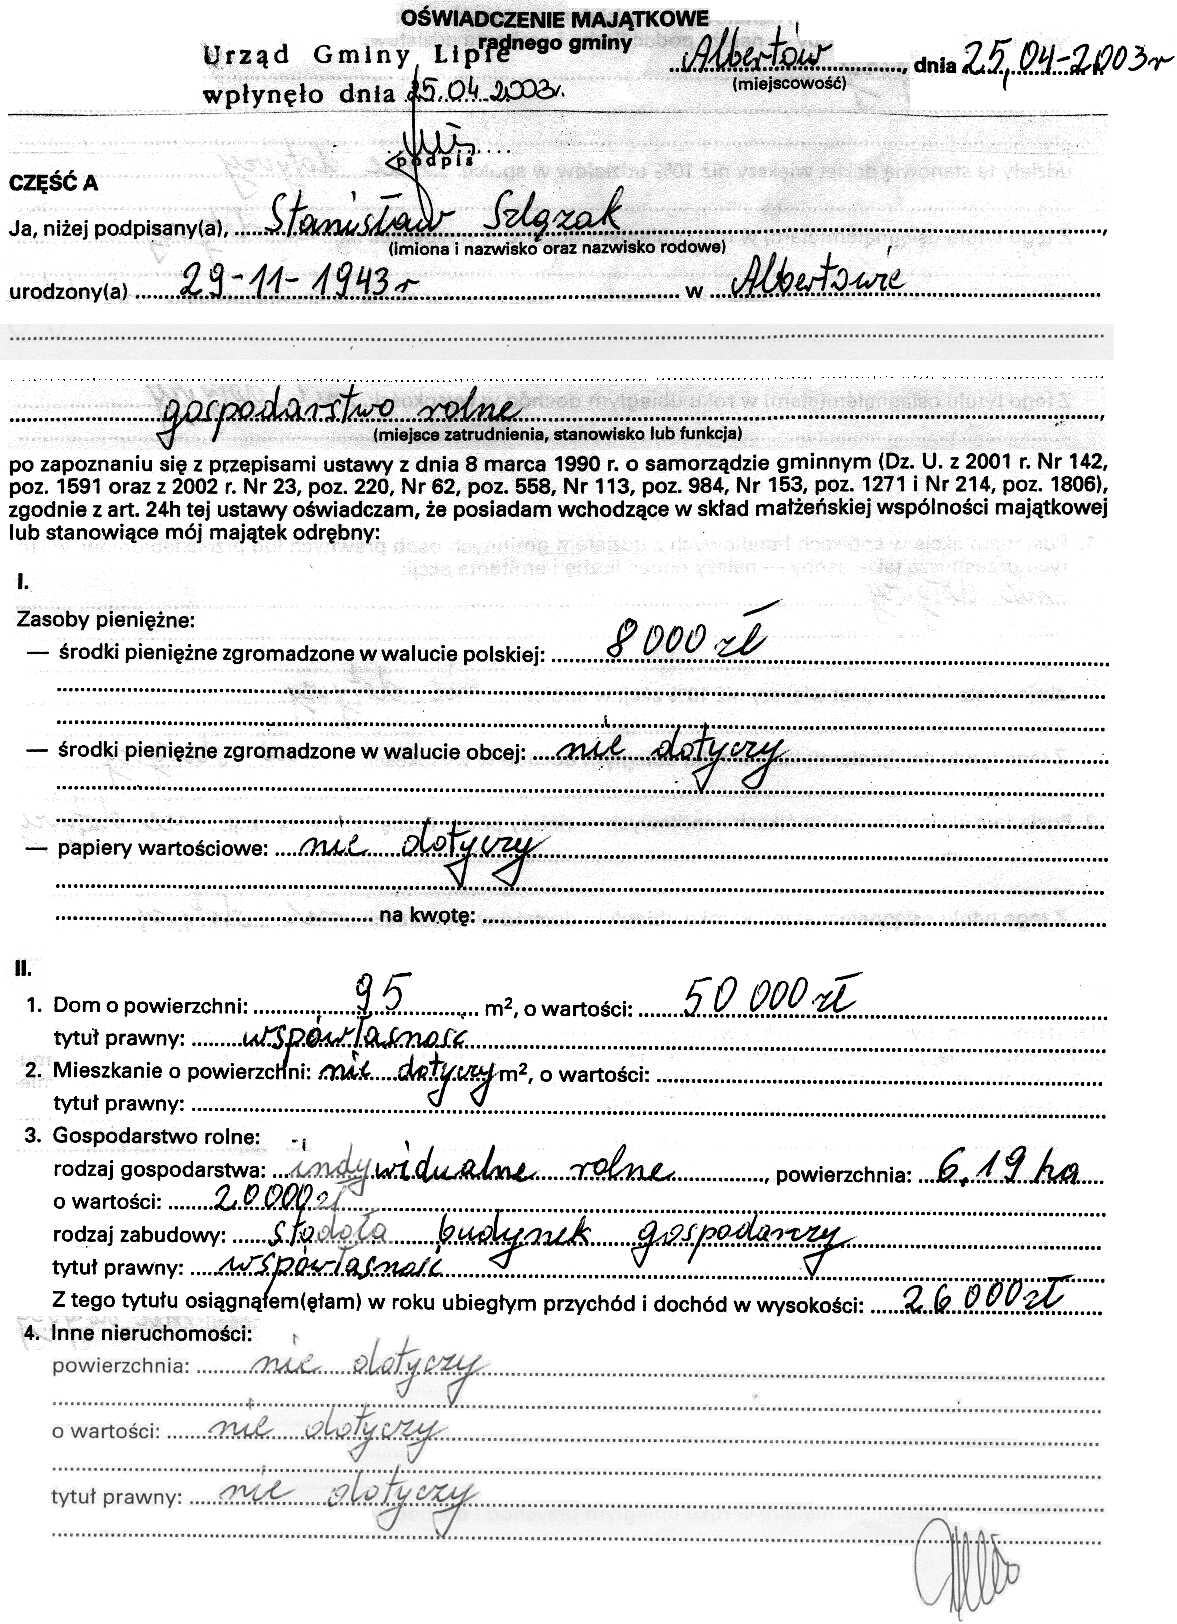 OŚWIADCZENIE MAJĄTKOWE
radnego gminy
Urząd Gminy Lipie
wpłynęło dnia 25.04.2003r.
podpis
Albertów, dnia 25,04-2003r
(miejscowość)
CZĘŚĆ A
Ja, niżej podpisany(a), Stanisław Szlązak,
(imiona i nazwisko oraz nazwisko rodowe)
urodzony(a) 29-11-1943r w Albertowie
gospodarstwo rolne,
(miejsce zatrudnienia, stanowisko lub funkcja)
po zapoznaniu się z przepisami ustawy z dnia 8 marca 1990 r. o samorządzie gminnym (Dz. U. z 2001 r. Nr 142,
poz. 1591 oraz z 2002 r. Nr 23, poz. 220, Nr 62, poz. 558, Nr 113, poz. 984, Nr 153, poz. 1271 i Nr 214, poz. 1806),
zgodnie z art. 24h tej ustawy oświadczam, że posiadam wchodzące w skład małżeńskiej wspólności majątkowej
lub stanowiące mój majątek odrębny:
I.
Zasoby pieniężne:
— środki pieniężne zgromadzone w walucie polskiej: 8 000 zł
— środki pieniężne zgromadzone w walucie obcej: nie dotyczy
— papiery wartościowe: nie dotyczy
na kwotę:
II.
1. Dom o powierzchni: 95 m², o wartości: 50 000 zł
tytuł prawny: współasność
2. Mieszkanie o powierzchni: nie dotyczy m², o wartości:
tytuł prawny:
3. Gospodarstwo rolne:
rodzaj gospodarstwa: indywidualne rolne, powierzchnia: 6,19 ha
o wartości: 20000 zł
rodzaj zabudowy: stodoła budynek gospodarczy
tytuł prawny: współasność
Z tego tytułu osiągnąłem(ęłam) w roku ubiegłym przychód i dochód w wysokości: 26 000 zł
4. Inne nieruchomości:
powierzchnia: nie dotyczy
o wartości: nie dotyczy
tytuł prawny: nie dotyczy